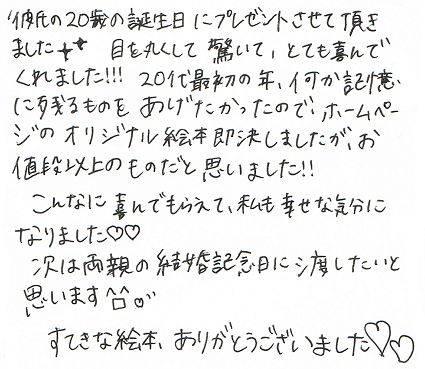 彼氏の20歳の誕生日にプレゼントさせて頂き
ました 目を丸くして驚いて、とても喜んで
くれました!!! 20代最初の年、何か記憶
に残るものをあげたかったので、ホームペー
ジのオリジナル絵本即決しましたが、お
値段以上のものだと思いました!!
こんなに喜んでもらえて、私も幸せな気分に
なりました♡♡
次は両親の結婚記念日に渡したいと
思います^□^。
すてきな絵本、ありがとうございました♡♡